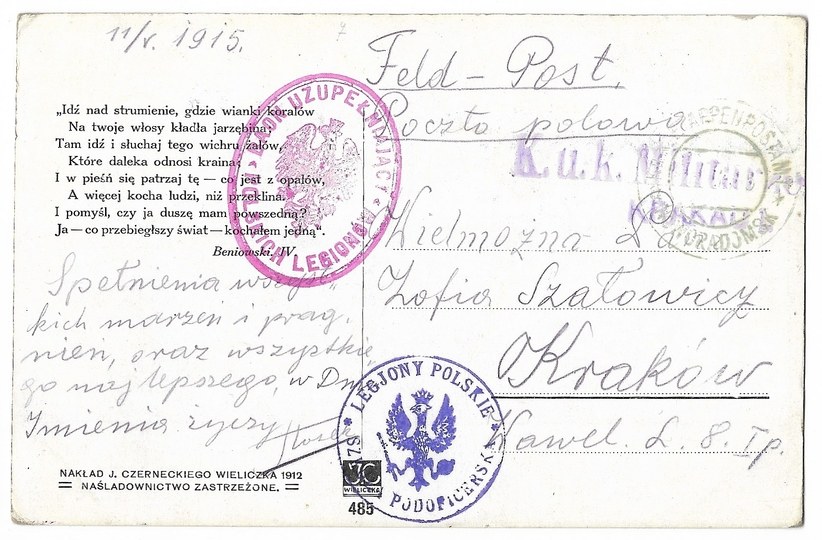 11/V. 1915.
7
„Idź nad strumienie, gdzie wianki koralów
Na twoje włosy kładła jarzębina;
Tam idź i słuchaj tego wichru żalów,
Które daleka odnosi kraina;
I w pieśń się patrzaj tę — co jest z opalów,
A więcej kocha ludzi, niż przeklina.
I pomyśl, czy ja duszę mam powszedną?
Ja — co przebiegłszy świat — kochałem jedną“.
Beniowski. IV.
UZUPEŁNIAJĄCY
LEGIONÓW
Spełnienia wszyst-
kich marzeń i prag-
nień, oraz wszystkie
go najlepszego, w Dniu
Imienia życzy
NAKŁAD J. CZERNECKIEGO WIELICZKA 1912
NAŚLADOWNICTWO ZASTRZEŻONE.
JC
WIELICZKA
485
LEGJONY POLSKIE
PODOFICERSKA
Feld-Post.
Poczta polowa
K. u. k. Militär
KRAKAU
ETAPPENPOSTAMT
Wielmożna
Zofia Szatowicz
Kraków
Wawel. L. 8. Ip.